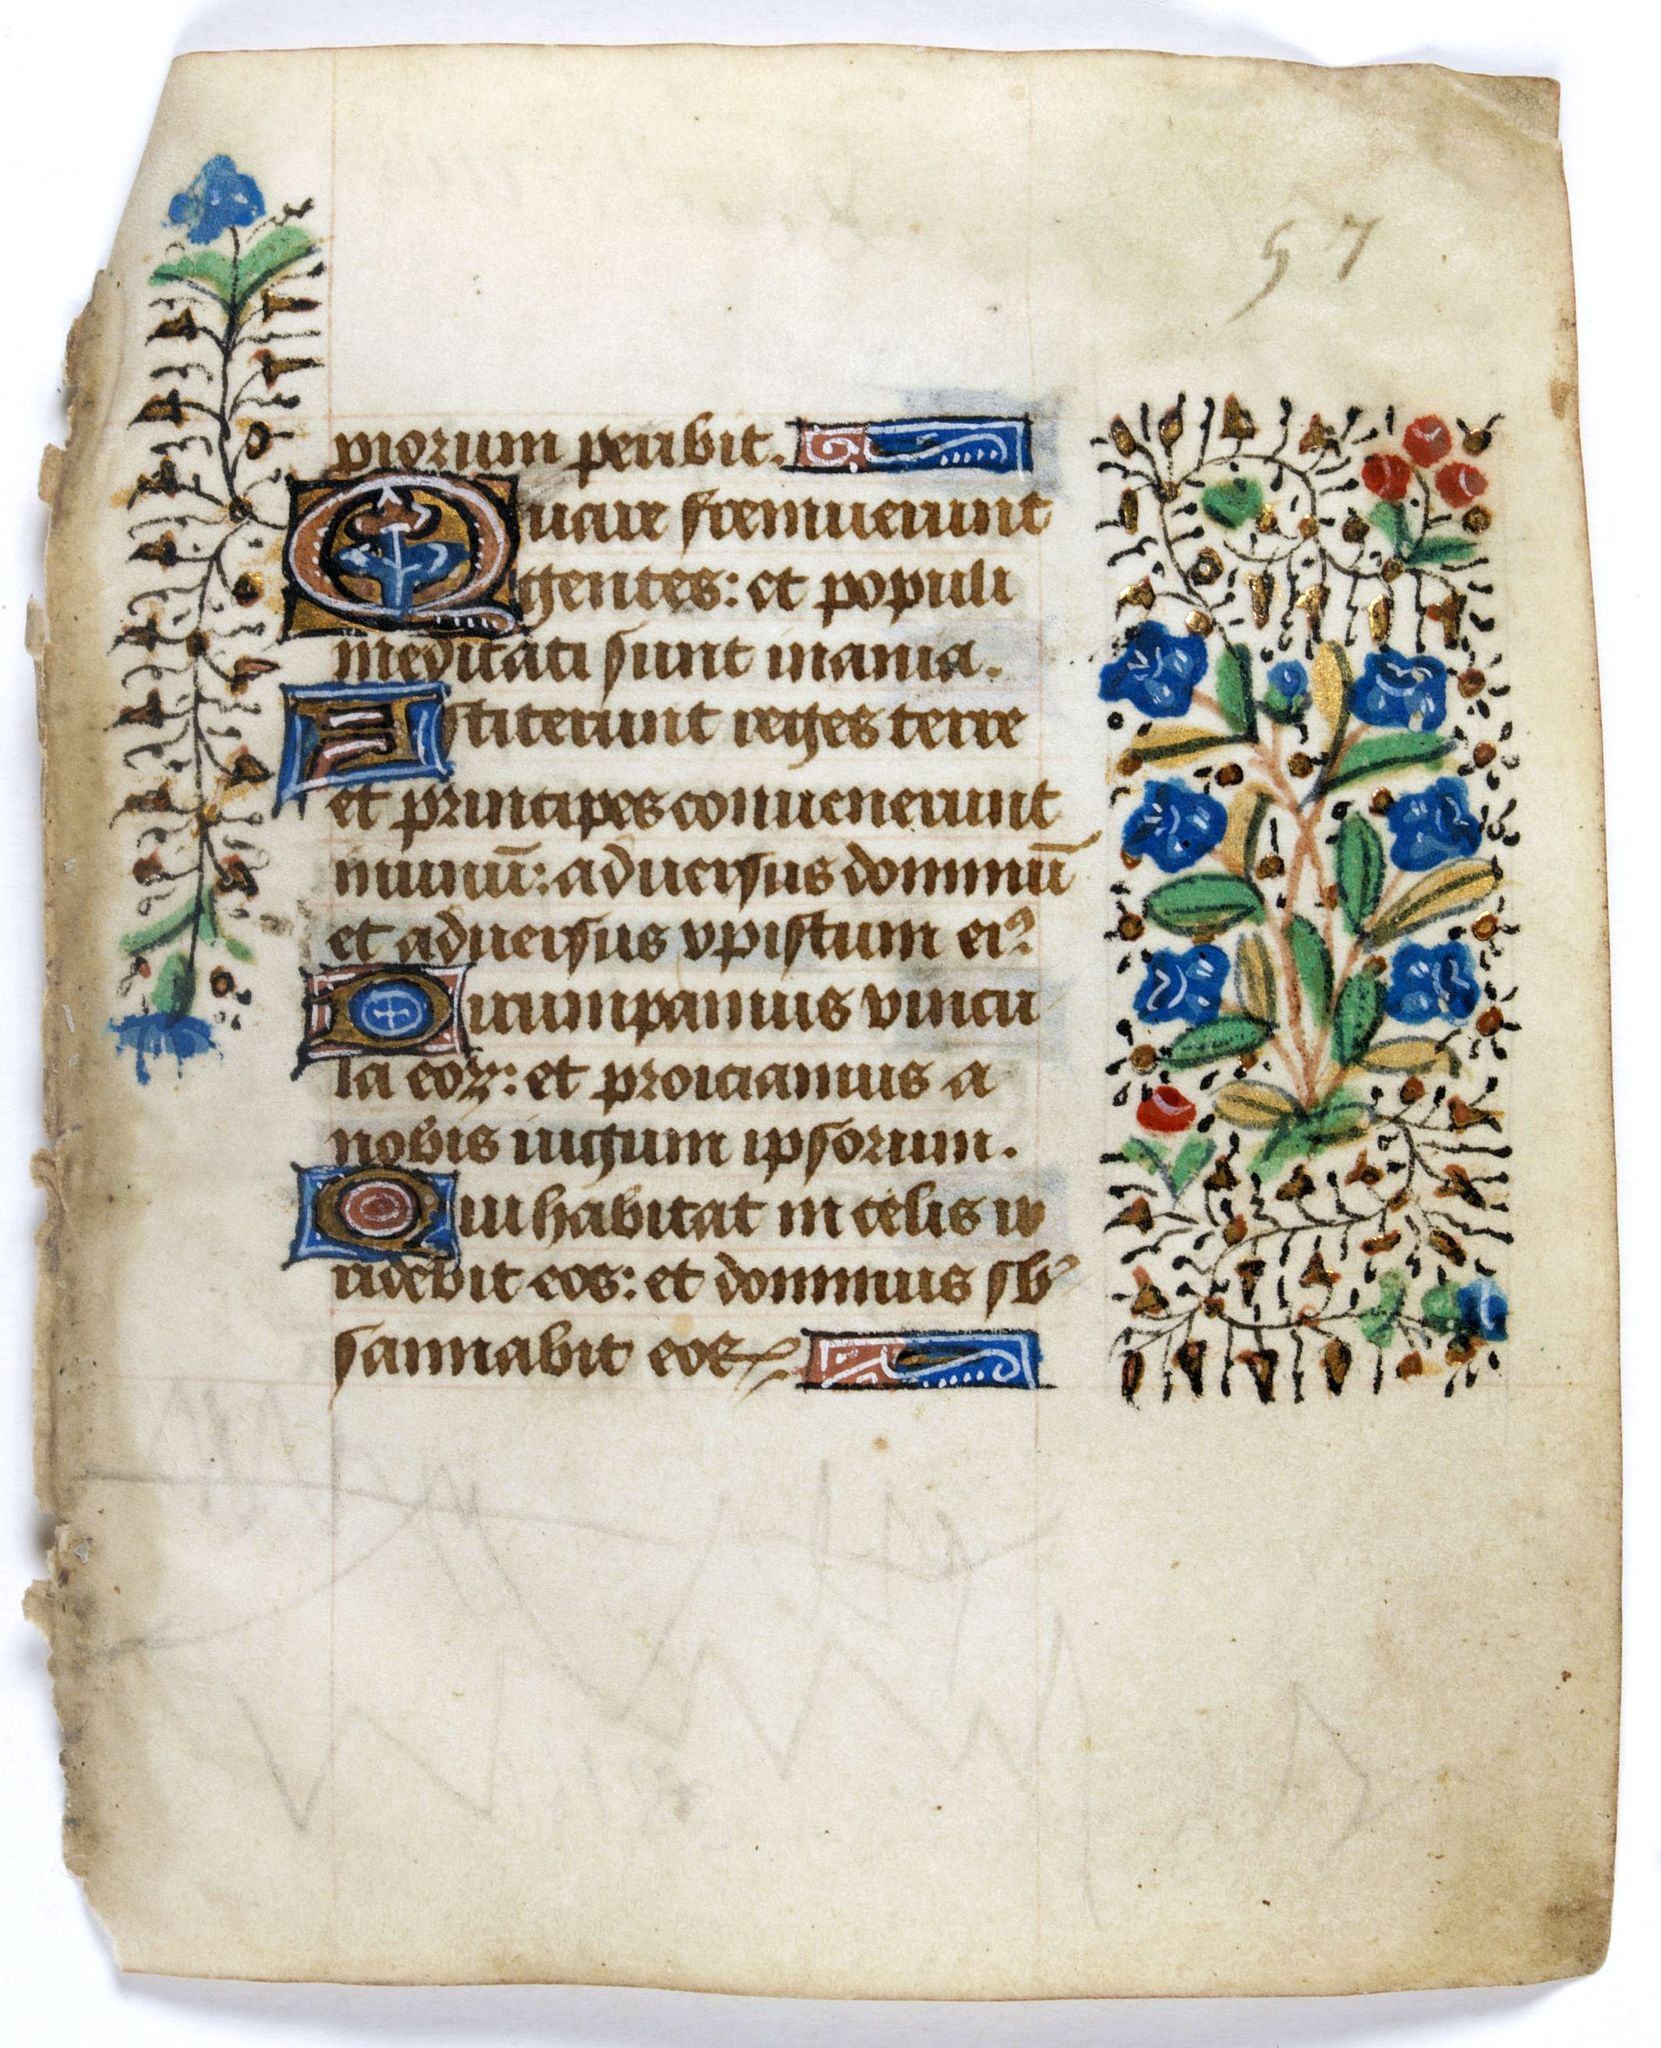 57
piorum peribit.
Quare fremuerunt
gentes: et populi
meditati sunt inania.
Astiterunt reges terre
et principes conuenerunt
inunū: aduersus dominū
et aduersus xpistum eiꝰ
Dirumpamus vincu
la eoꝝ: et proiciamus a
nobis iugum ipsorum.
Qui habitat in celis ir
ridebit eos: et dominus sbꝰ
sannabit eos